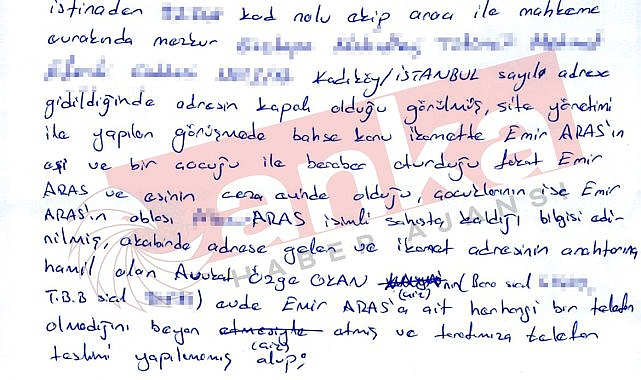 istinaden kod nolu ekip aracı ile mahkeme
evrakında mezkur
Kadıköy/İSTANBUL sayılı adrese
gidildiğinde adresin kapalı olduğu görülmüş, site yönetimi
ile yapılan görüşmede bahse konu ikamette Emir ARAS'ın
eşi ve bir çocuğu ile beraber oturduğu fakat Emir
ARAS ve eşinin ceza evinde olduğu, çocuklarının ise Emir
ARAS'ın ablası ARAS isimli şahısta kaldığı bilgisi edi-
nilmiş, akabinde adrese gelen ve ikamet adresinin anahtarına
hamil olan Avukat Özge OKAN nın (Baro sicil
T.B.B sicil ) evde Emir ARAS'a ait herhangi bir telefon
olmadığını beyan etmesiyle etmiş ve tarafımıza telefon
teslimi yapılmamış olup;
anka
HABER AJANS